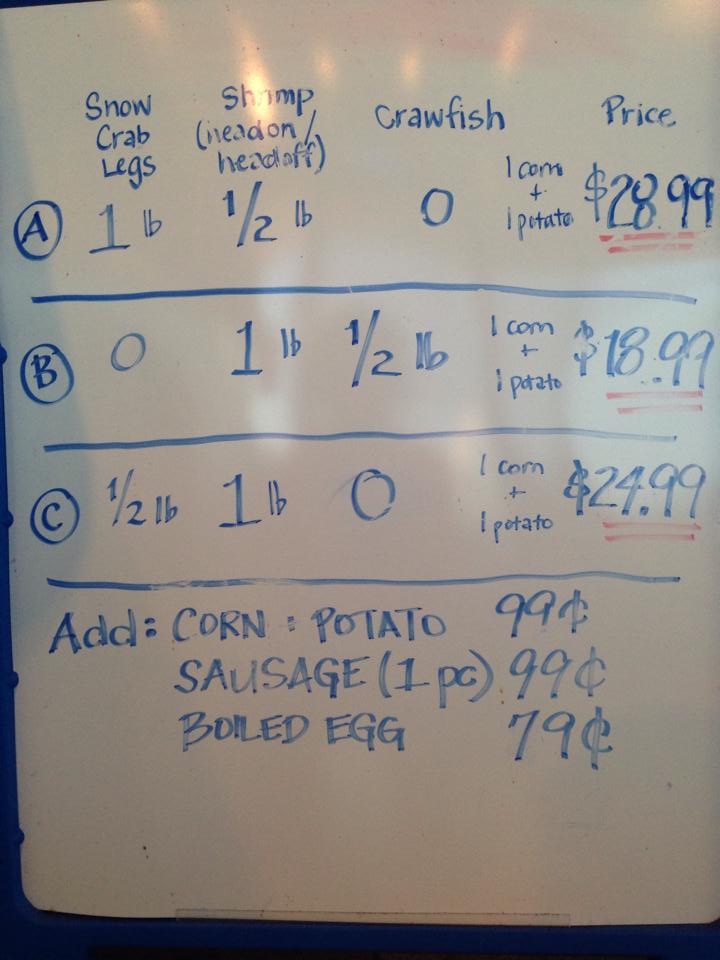 Snow Crab Legs
Shrimp (headon/ headoff)
Crawfish
Price
A 1 lb 1/2 lb 0 1 corn + 1 potato $28.99
B 0 1 lb 1/2 lb 1 corn + 1 potato $18.99
C 1/2 lb 1 lb 0 1 corn + 1 potato $24.99
Add: CORN : POTATO 99¢
SAUSAGE (1 pc) 99¢
BOILED EGG 79¢